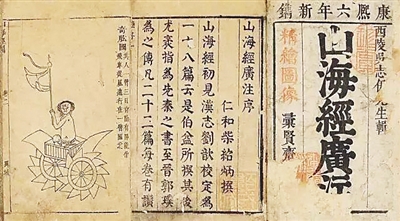 康熙六年新鐫
西陵吳志伊先生輯
山海經廣注
精繪圖像
彙賢齋
山海經廣注序
仁和柴紹炳撰
山海經初見漢志劉歆校定為
一十八篇云是伯益所撰其後
尤袤指為先秦之書至晉郭璞
為之傳凡二十三篇每卷有讚
奇肱國